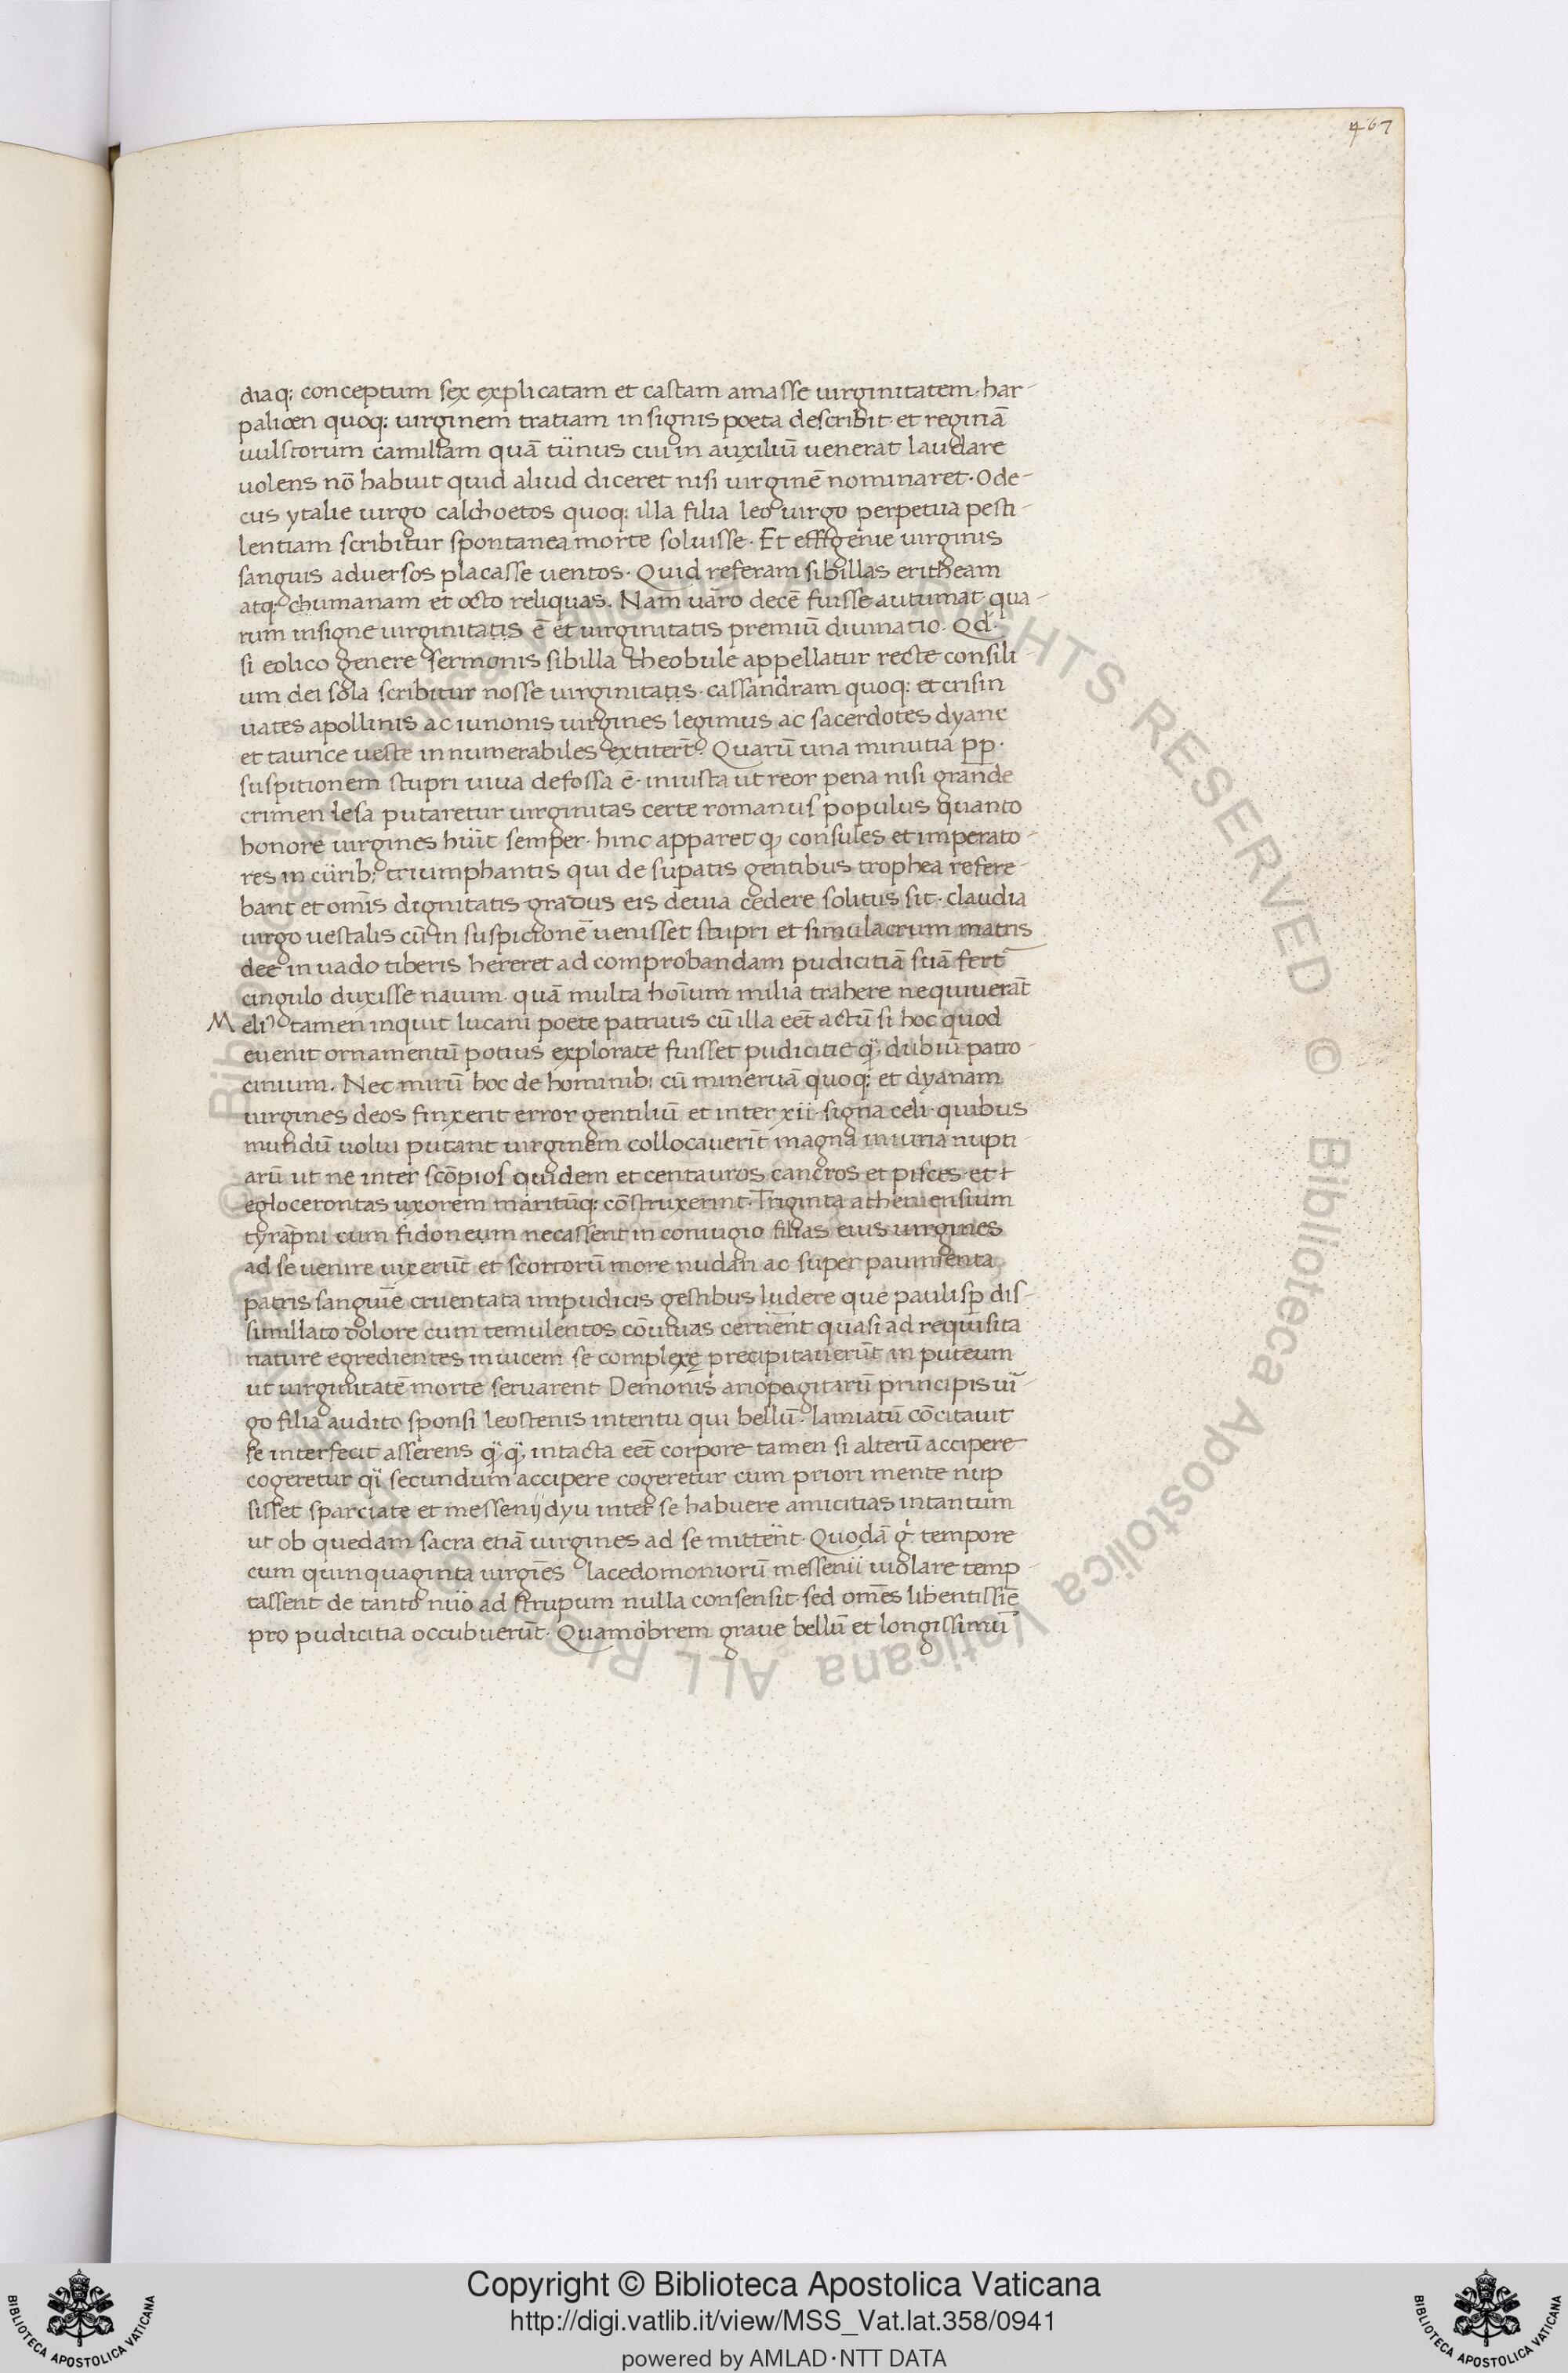 467
diaq; conceptum sex explicatam et castam amasse uirginitatem · har-
palicen quoq; uirginem tratiam insignis poeta describit · et reginā
uulscorum camillam quā tùnus cui in auxiliū uenerat laudare
uolens nō habuit quid aliud diceret nisi uirginē nominaret · O de-
cus ytalie uirgo calchoetos quoq; illa filia leo uirgo perpetua pesti-
lentiam scribitur spontanea morte soluisse · Et effigenie uirginis
sanguis aduersos placasse uentos · Quid referam sibillas eritheam
atq; chumanam et octo reliquas. Nam uaro decē fuisse autumat qua-
rum insigne uirginitatis ē et uirginitatis premiū diuinatio · Qd ·
si eolico genere sermonis sibilla theobule appellatur recte consili-
um dei sola scribitur nosse uirginitatis · cassandram quoq; et crisin
uates apollinis ac iunonis uirgines legimus ac sacerdotes dyane
et taurice ueste innumerabiles extiterт̄. Quarū una minutia pp ·
suspitionem stupri uiua defossa ē · iniusta ut reor pena nisi grande
crimen lesa putaretur uirginitas certe romanus populus quanto
honore uirgines hùit semper · hinc apparet q, consules et imperato-
res in cùrib; triumphantis qui de supatis gentibus trophea refere-
bant et om̄is dignitatis gradus eis deuia cedere solitus sit · claudia
uirgo uestalis cū in suspicionē uenisset stupri et simulacrum matris
dee in uado tiberis hereret ad comprobandam pudicitiā suā fert̄
cingulo duxisse nauim · quā multa hoīum milia trahere nequiuerāt
Meliꝰ tamen inquit lucani poete patruus cū illa eēt actū si hoc quod
euenit ornamentū potius explorate fuisset pudicitie q̈, dubiū patro-
cinium. Nec mirū hoc de hominib; cū mineruā quoq; et dyanam
uirgines deos finxerit error gentiliū et inter xii · signa celi · quibus
mundū uolui putant uirginem collocauerīt magna iniuria nupti-
arū ut ne inter scōpios quidem et centauros cancros et pisces · et t
eglocerontas uxorem maritūq; cōstruxerint · Triginta atheniensium
tyrapni cum fidoneum necassent in coniugio filias eius uirgines
ad se uenire uixerūt et scortorū more nudari ac super pauimenta
patris sanguīe cruentata impudicis gestibus ludere que paulisp dis-
simillato dolore cum temulentos cōuiuas cernēnt quasi ad requisita
nature egredientes inuicem se complexe precipitauerūt in puteum
ut uirginitatē morte seruarent Demonis ariopagitarū principis uī-
go filia audito sponsi leostenis interitu qui bellū · lamiatū cōcitauit
se interfecit asserens q̈q̈, intacta eēt corpore tamen si alterū accipere
cogeretur qï secundum accipere cogeretur cum priori mente nup
sisset sparciate et messenij dyu inter se habuere amicitias intantum
ut ob quedam sacra etiā uirgines ad se mitteñt · Quodā g tempore
cum quinquaginta uirgīes lacedomoniorū messenii uiolare temp-
tassent de tanto nùo ad strupum nulla consensit · sed om̄es libentissīe
pro pudicitia occubuerūt · Quamobrem graue bellū et longissimū
Copyright © Biblioteca Apostolica Vaticana
http://digi.vatlib.it/view/MSS_Vat.lat.358/0941
powered by AMLAD·NTT DATA